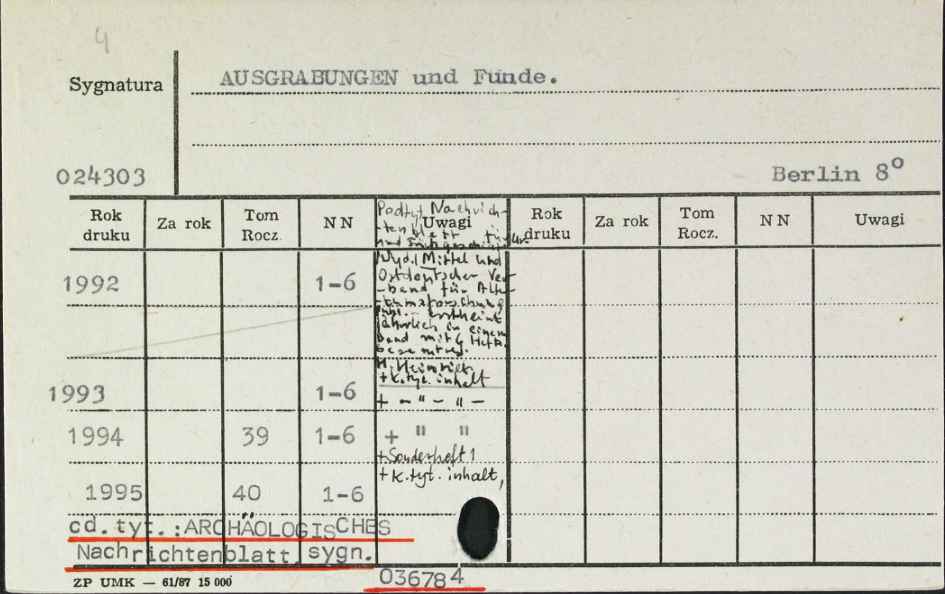 4
Sygnatura
AUSGRABUNGEN und Funde.
024303
Berlin 8º
Rok druku Za rok Tom Rocz. NN Uwagi Rok druku Za rok Tom Rocz. NN Uwagi
Podtyt Nachrich-
-tenblatt für
und
1992 1-6
Wyd. Mittel und
Ostdeutscher Ver-
-band für Alter-
-tumsforschung
erscheint
jährlich in einem
Band mit 6 Heft.
+ k.tyt. inhalt
1993 1-6 + - " - " -
1994 39 1-6 + " "
+ Sonderheft 1
+ k.tyt. inhalt,
1995 40 1-6
cd.tyt.:ARCHÄOLOGISCHES
Nachrichtenblatt sygn.
036784
ZP UMK — 61/87 15 000